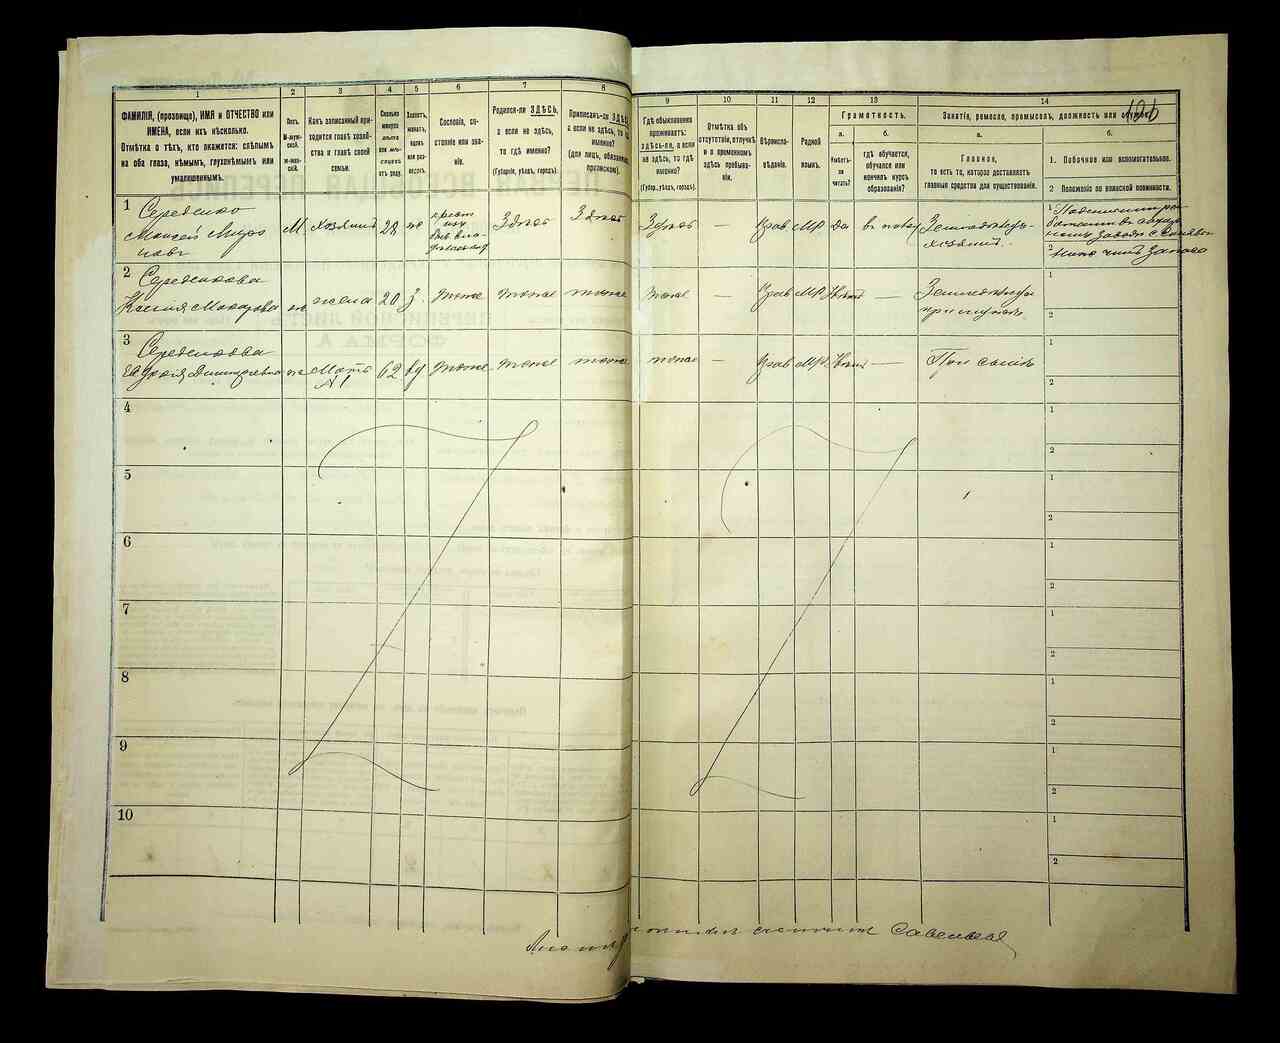 1
2
3
4
5
6
7
8
9
10
11
12
13
14
ФАМИЛІЯ, (прозвище), ИМЯ и ОТЧЕСТВО или
ИМЕНА, если ихъ нѣсколько.
Отмѣтка о тѣхъ, кто окажется: слѣпымъ
на оба глаза, нѣмымъ, глухонѣмымъ или
умалишеннымъ.
Полъ.
М-муж-
ской.
Ж-жен-
скій.
Какъ записанный при-
ходится главѣ хозяй-
ства и главѣ своей
семьи.
Сколько
минуло
лѣтъ
или мѣ-
сяцевъ
отъ роду.
Холостъ,
женатъ,
вдовъ
или раз-
веденъ.
Сословіе, со-
стояніе или зва-
ніе.
Родился-ли ЗДѢСЬ,
а если не здѣсь,
то гдѣ именно?
(Губернія, уѣздъ, городъ).
Приписанъ-ли ЗДѢСЬ,
а если не здѣсь, то гдѣ
именно?
(для лицъ, обязанныхъ
припиской).
Гдѣ обыкновенно
проживаетъ:
здѣсь-ли, а если
не здѣсь, то гдѣ
именно?
(Губер., уѣздъ, городъ).
Отмѣтка объ
отсутствіи, отлучкѣ
и о временномъ
здѣсь пребыва-
ніи.
Вѣроиспо-
вѣданіе.
Родной
языкъ.
Грамотность.
а.
б.
Умѣетъ-
ли
читать?
гдѣ обучается,
обучался или
кончилъ курсъ
образованія?
Занятіе, ремесло, промыселъ, должность или служба.
126
а.
б.
Главное,
то есть то, которое доставляетъ
главныя средства для существованія.
1. Побочное или вспомогательное.
2 Положеніе по воинской повинности.
1 Середенко
Моисей Миро
новъ
М
хозяинъ
28
Здѣсь
Здѣсь
Здѣсь
—
Прав
МР
Да
Земледѣлецъ-
хозяинъ.
1
2
2 Середенкова
Ксенія Макарова
ж
жена
20
З.
тоже
тоже
тоже
тоже
—
Прав
МР
Нѣтъ
—
Земледѣліе
при мужѣ
1
2
3 Середенкова
Дмитріевна
ж
Мать
№ 1
62
вд
тоже
тоже
тоже
тоже
—
Прав
МР
Нѣтъ
—
При сынѣ
1
2
4
1
2
5
1
2
6
1
2
7
1
2
8
1
2
9
1
2
10
1
2